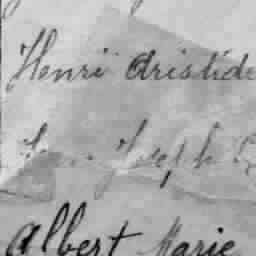 Henri Aristide
Joseph
Albert Marie